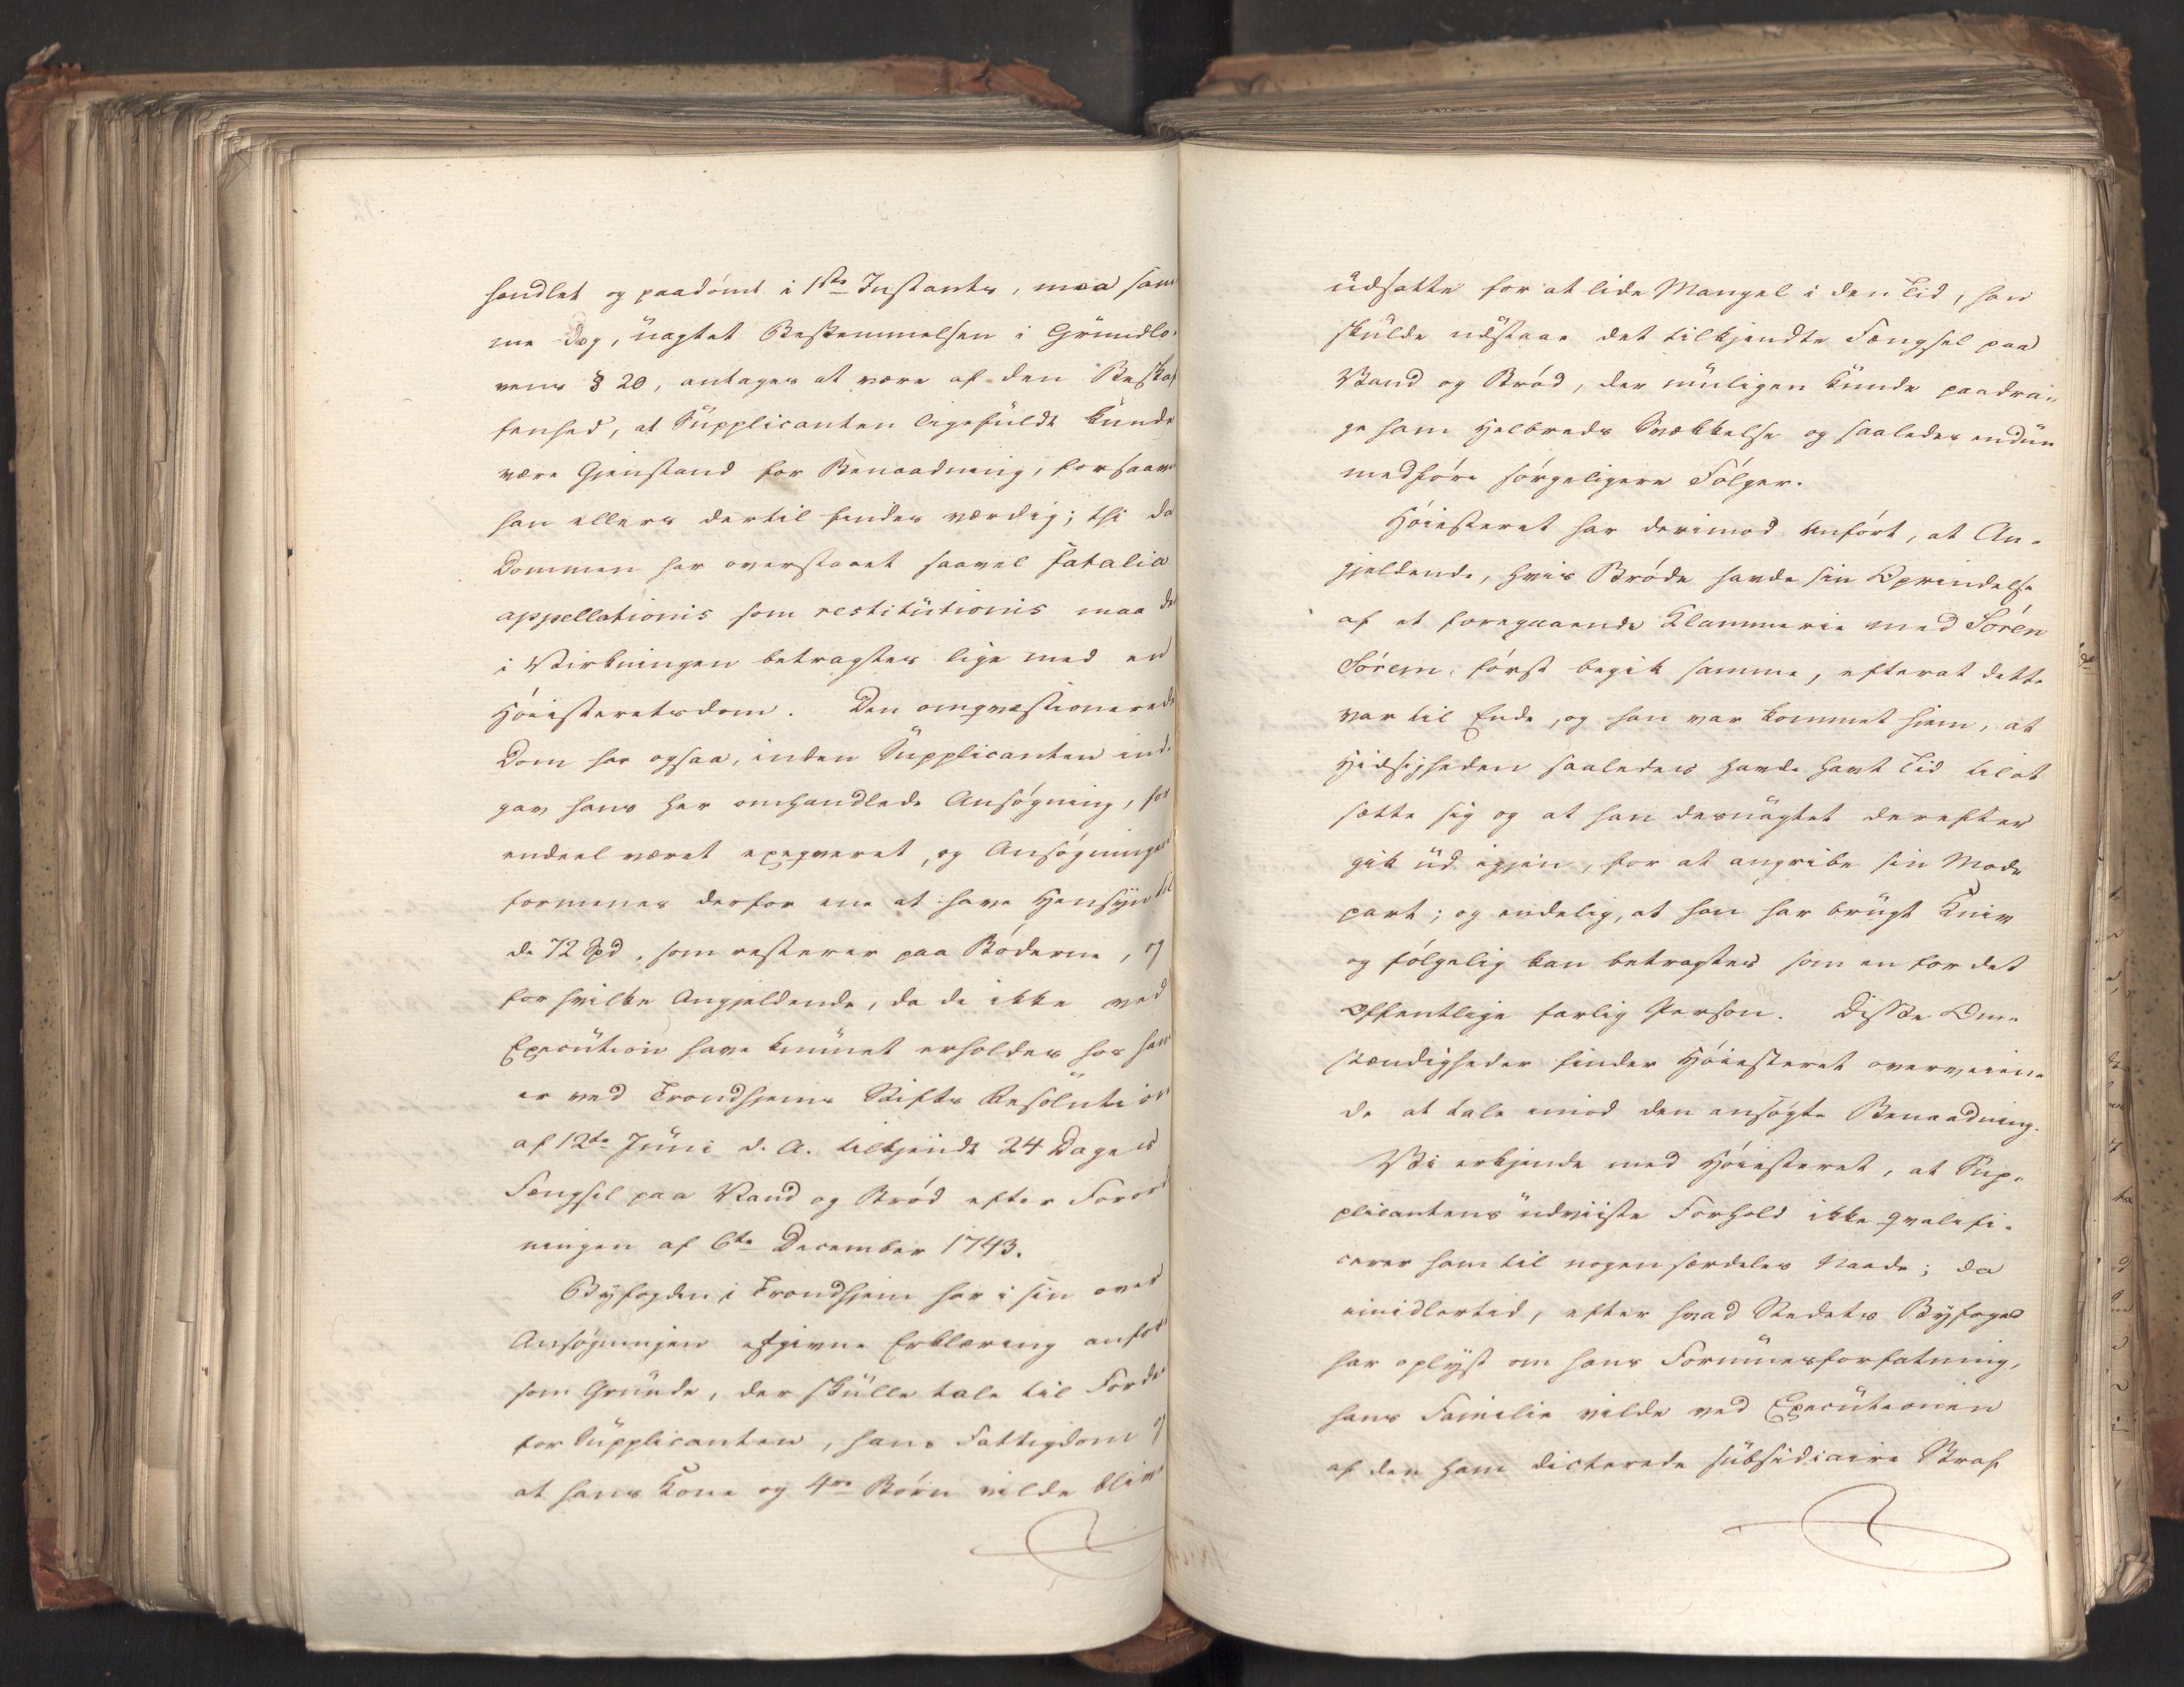 handlet og paadømt i 1ste Instants, maa sam
me Dog, uagtet Bestemmelsen i Grundlo-
vens § 20, antages at være af den Beskaf
fenhed, at Supplicanten ligefuldt kunde
være Gjenstand for Benaadning, forsaavi
han ellers dertil findes værdig; thi da
Dommen har overstaaet saavel fatalia
appellationis som restitutionis maa de
i Virkningen betragtes lige med en
Høiesteretsdom. Den omqvæstionerede
Dom har ogsaa, inden Supplicanten ind-
gav hans her omhandlede Ansøgning, for
endeel været exeqveret, og Ansøgningen
formenes derfor ene at have Hensyn til
de 72 Spd. som resterer paa Bøderne, og
for hvilke Angjeldende, da de ikke ved
Execution have kunnet erholdes hos ham
er ved Trondhjems Stifts Resolution
af 12te Juni d. A. tilkjendt 24 Dages
Fængsel paa Vand og Brød efter Forord
ningen af 6te December 1743.
Byfogden i Trondhjem har i sin over
Ansøgningen afgivne Erklæring anfør
som Grunde, der skulle tale til Fordel
for Supplicanten, hans Fattigdom og
at hans Kone og 4re Børn vilde blive
udsatte for at lide Mangel i den Tid, han
skulde udstaae det tilkjendte Fængsel paa
Vand og Brød, der muligen kunde paadra-
ge ham Helbreds Svækkelse og saaledes endnu
medføre sørgeligere Følger.
Høiesteret har derimod anført, at An-
gjeldende, hvis Brøde havde sin Oprindelse
af et foregaaende Klammerie med Søren
Sørem, først begik samme, efterat dette
var til Ende, og han var kommet hjem, at
Hidsigheden saaledes havde havt Tid til at
sætte sig og at han desuagtet derefter
gik ud igjen, for at angribe sin Mod-
part; og endelig, at han har brugt Kniv
og følgelig kan betragtes som en for det
Offentlige farlig Person. Disse Om-
stændigheder finder Høiesteret overveien-
de at tale imod den ansøgte Benaadning.
Vi erkjende med Høiesteret, at Sup-
plicantens udviiste Forhold ikke qvalifi-
cerer ham til nogen særdeles Naade; da
imidlertid, efter hvad Stedets Byfoged
har oplyst om hans Formuesforfatning,
hans Familie vilde ved Executionen
af den ham dicterede subsidiaire Straf